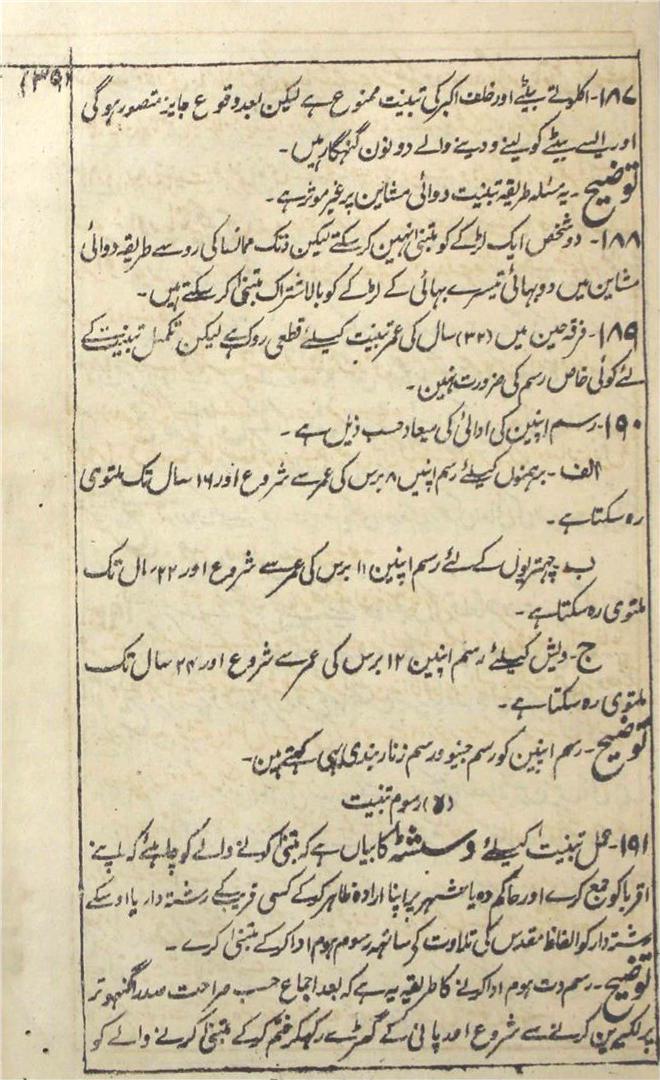 (۳۵)
۱۸۷-اکلوتے بیٹے اور خلف اکبر کی تبنیت ممنوع ہے لیکن بعد وقوع جایز متصور ہوگی
اور ایسے بیٹے کو لینے و دینے والے دونون گنہگار ہیں۔
توضیح۔یہ مسئلہ طریقہ تبنیت دوائی مشاین پر غیر موثر ہے۔
۱۸۸-دو شخص ایک لڑکے کو متبنیٰ نہین کرسکتے لیکن دتک ممانسا کی رو سے طریقہ دوائی
مشاین میں دو بہائی تیسرے بہائی کے لڑکے کو بالاشتراک متبنیٰ کرسکتے ہیں۔
۱۸۹-فرقہ جین میں (۳۲) سال کی عمر تبنیت کیلئے قطعی روک ہے لیکن تکمیل تبنیت کے
لئے کوئی خاص رسم کی ضرورت نہین۔
۱۹۰-رسم اپنین کی ادائی کی میعاد حسب ذیل ہے۔
الف-برہمنوں کیلئے رسم اپنیں ۸ برس کی عمر سے شروع اور ۱۶ سال تک ملتوی
رہ سکتا ہے۔
ب-چہتریوں کے لئے رسم اپنین ۱۱ برس کی عمر سے شروع اور ۲۲ سال تک
ملتوی رہ سکتا ہے۔
ج-ویش کیلئے رسم اپنین ۱۲ برس کی عمر سے شروع اور ۲۴ سال تک
ملتوی رہ سکتا ہے۔
توضیح-رسم اپنین کو رسم جنیو و رسم زنار بندی بہی کہتے ہین۔
(۵) رسوم تبنیت
۱۹۱-عمل تبنیت کیلئے وسشٹہ کا بیاں ہے کہ متبنیٰ کرنے والے کو چاہئے کہ اپنے
اقربا کو جمع کرے اور حاکم دہ یا شہر پر اپنا ارادہ ظاہر کرکے کسی قریب کے رشتہ دار یا اوسکے
رشتہ دار کو الفاظ مقدس کی تلاوت کی ساتہہ رسوم ہوم ادا کرکے متبنیٰ کرے۔
توضیح-رسم دت ہوم ادا کرنے کا طریقہ یہ ہے کہ بعد اجماع حسب صراحت صدر اگنہوتر
پر کرنے سے شروع اور پانی کے گھڑے رکہکر ختم کرکے متبنیٰ کرنے والے کو